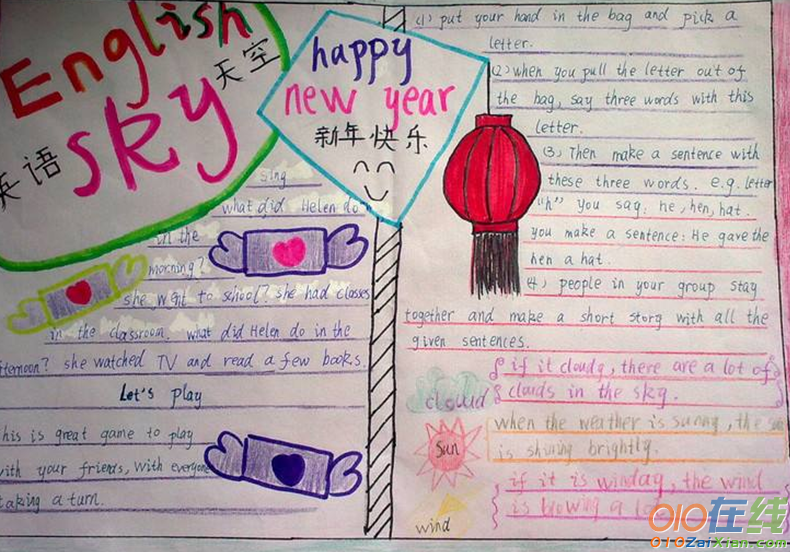 English
天空
英语
sky
happy
new year
新年快乐
sing
what did Helen do
in the
morning?
she went to school? she had classes
in the classroom. what did Helen do in the
fternoon? she watched TV and read a few books.
Let's play
his is great game to play
with your friends, with everyone
taking a turn.
(1) put your hand in the bag and pick a
letter.
(2) when you pull the letter out of
the bag, say three words with this
letter.
(3) Then make a sentence with
these three words. e.g. letter
"h" you say: he, hen, hat.
you make a sentence: He gave the
hen a hat.
(4) people in your group stay
together and make a short story with all the
given sentences.
cloud
if it cloudy, there are a lot of
clouds in the sky.
Sun
when the weather is sunny, the sun
is shining brightly.
wind
if it is winday, the wind
is blowing a
010在线
010ZaiXian.com